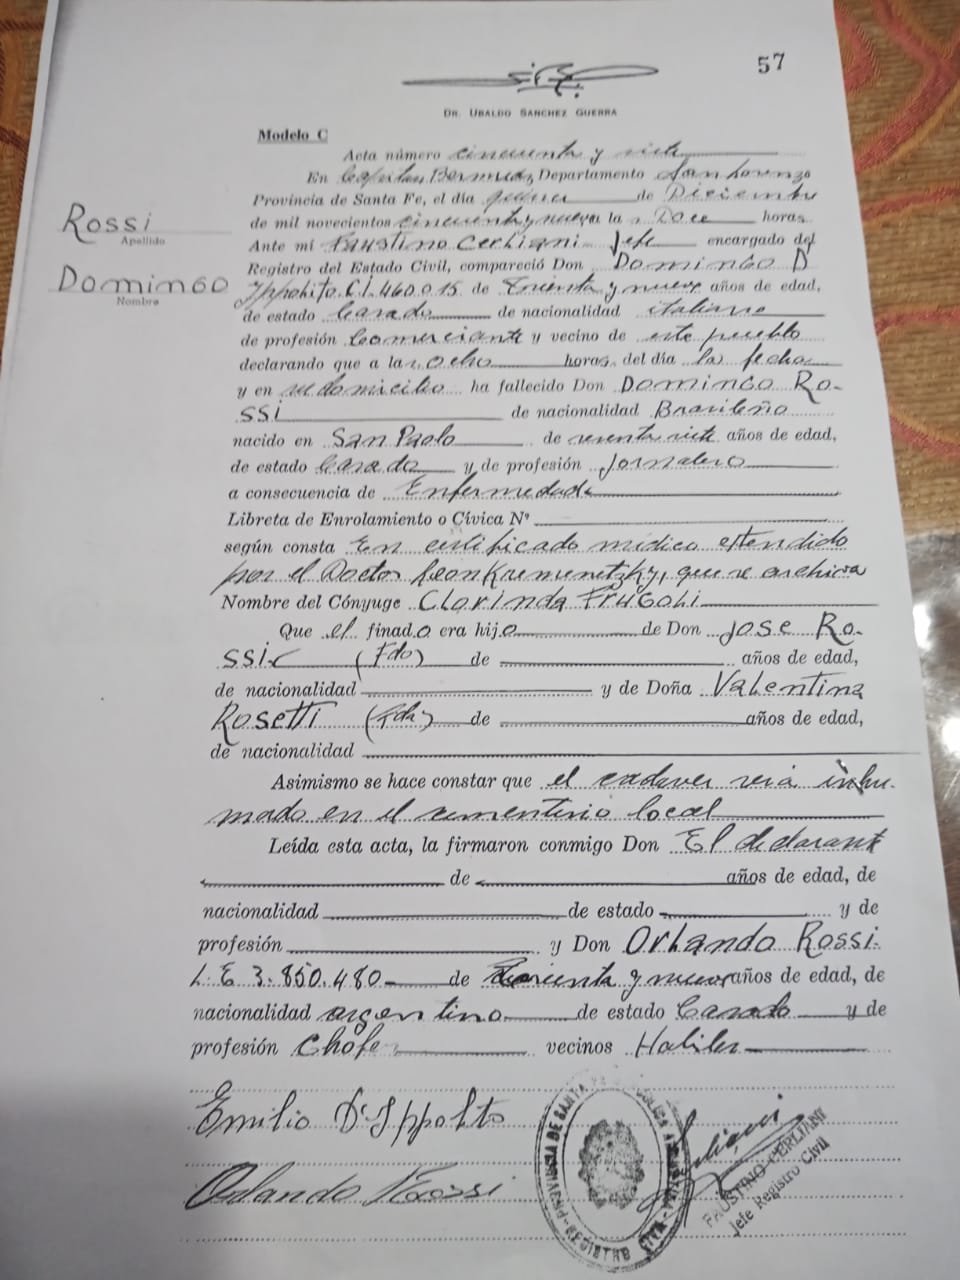 57
DR. UBALDO SANCHEZ GUERRA
Modelo C
Acta número cincuenta y siete
En Capitan Bermudez Departamento San Lorenzo
Provincia de Santa Fe, el día de Diciembre
de mil novecientos cincuenta y nueve a la s Doce horas
Rossi
Apellido
Ante mí Faustino Cerliani Jefe encargado del
Registro del Estado Civil, compareció Don Domingo D
Domingo
Nombre
Ippolito C.I. 460.015 de y nueve años de edad,
de estado Casado de nacionalidad italiano
de profesión Comerciante y vecino de este pueblo
declarando que a las ocho horas del día la fecha
y en su domicilio ha fallecido Don Domingo Ro-
ssi de nacionalidad Brasileño
nacido en San Paolo de siete años de edad,
de estado Casado y de profesión Jornalero
a consecuencia de Enfermedad
Libreta de Enrolamiento o Cívica Nº
según consta En certificado médico extendido
por el Doctor Leon, que se archiva
Nombre del Cónyuge Clorinda Frugoli
Que el finado era hijo de Don Jose Ro-
ssi (Fdo) de años de edad,
de nacionalidad y de Doña Valentina
Rosetti (Fda) de años de edad,
de nacionalidad
Asimismo se hace constar que el cadaver será inhu-
mado en el cementerio local
Leída esta acta, la firmaron conmigo Don El declarante
de años de edad, de
nacionalidad de estado y de
profesión y Don Orlando Rossi
L.E 3.850.480 de y nueve años de edad, de
nacionalidad argentino de estado Casado y de
profesión Chofe vecinos Habiles
Emilio D'Ippolito
Orlando Rossi
PROVINCIA DE SANTA FE
REGISTRO CIVIL
FAUSTINO CERLIANI
Jefe Registro Civil